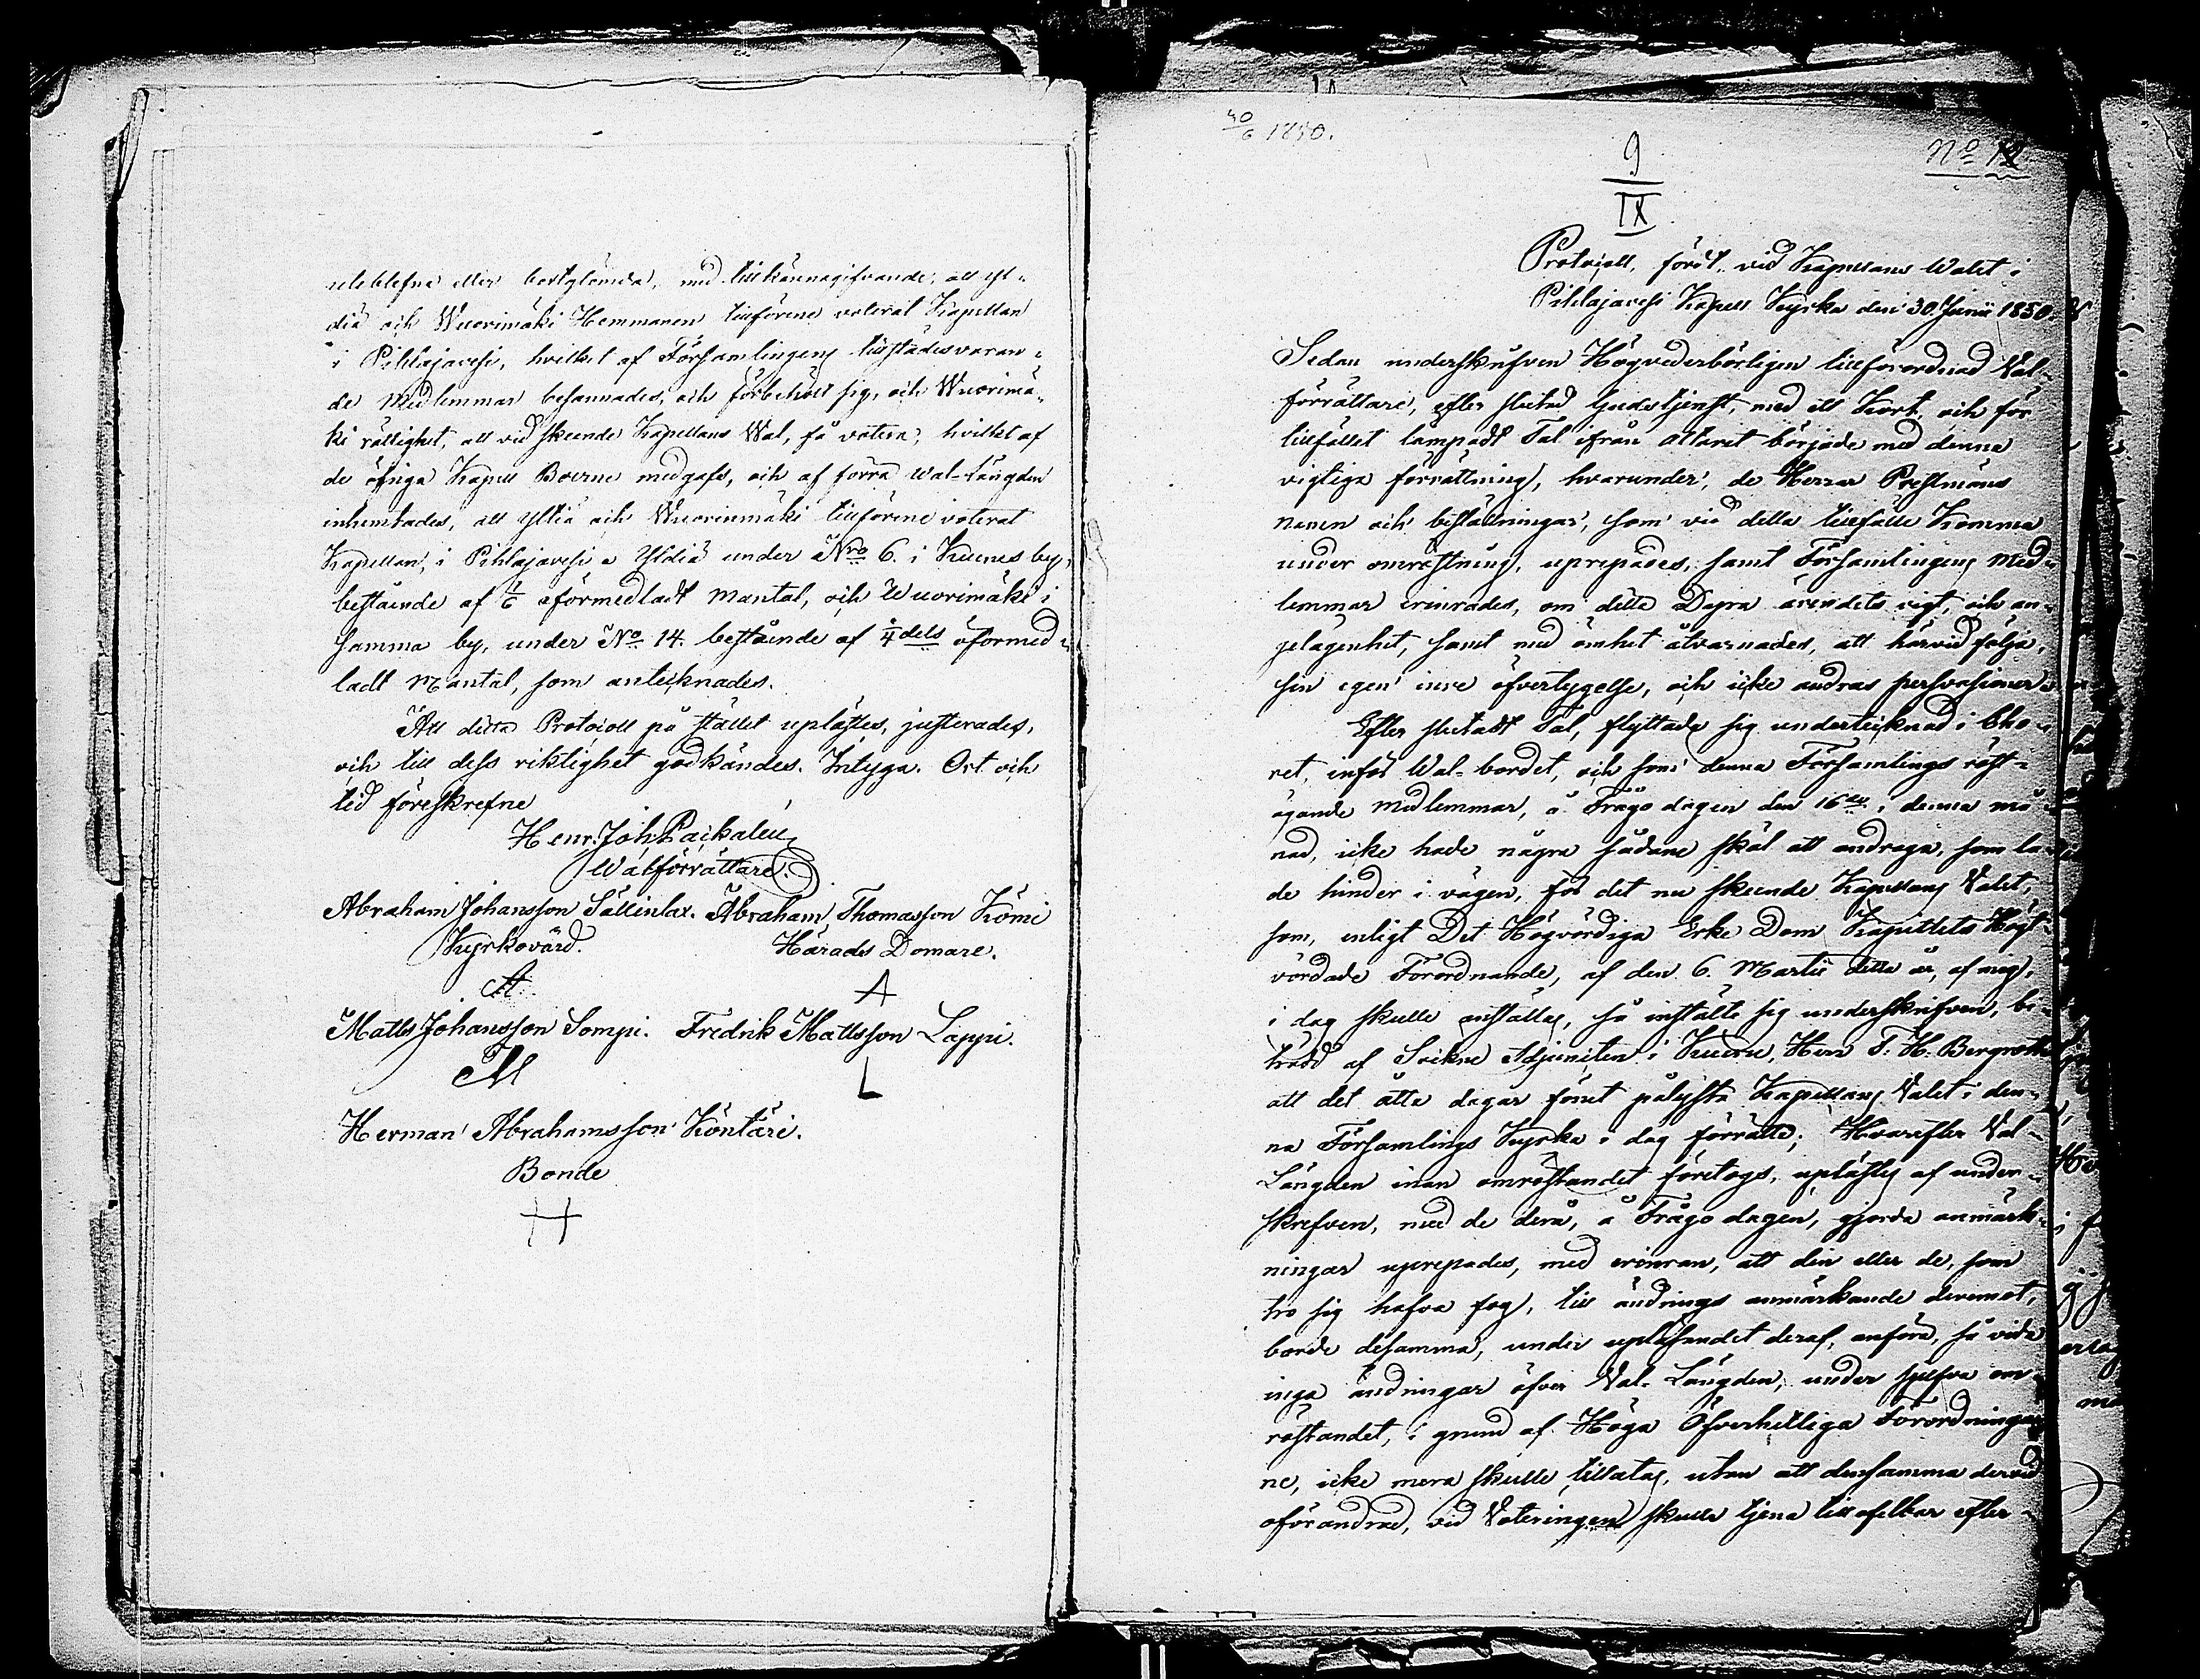 uteblefne eller bortglömda, med tillkännagifvande, att Yl-
diä och Wuorimäki Hemmanen tillförene voterat Kapellan
i Pihlajavesi, hvilket af Församlingens tillstädesvaran-
de Medlemmar besannades, och förbehöll sig, och Wuorimä-
ki rättighet, att vid skeende Kapellans Wal, få votera; hvilket af
de öfriga Kapell Boerne medgafs, och af förra Wal-Längden
inhemtades, att Yldiä och Wuorimäki tillförene voterat
Kapellan i Pihlajavesi, Yldiä under Nro 6. i Kuenes by,
bestäende af 1/6 oförmedladt Mantal, och Wuorimäki i
samma by, under No 14. bestående af 1/4 dels oförmed-
ladt Mantal, som antecknades.
Att detta Protocoll på stället uplästes, justerades,
och till dess riktighet godkändes. Intyga. Ort och
tid föreskrefne
Henr. Joh. Packalén
Walförrättare.
Abraham Johansson Sällinlax. Abraham Thomasson Kömi
Kyrkovärd. Härads Domare.
A A
Matts Johansson Sompi. Fredrik Mattsson Lappi.
M L
Herman Abrahamsson Köntäri.
Bonde
H
30/6 1850.
9
IX
No 12
Protocoll, fördt vid Kapellans Walet i
Pihlajavesi Kapell Kyrka den 30 Junii 1850.
Sedan underskrifven Högvederbörligen tillförordnad Val-
förrättare, efter slutad Gudstjenst, med ett kort, och för
tillfället lämpadt Tal ifrån altaret började med denna
vigtiga förrättning, hvarunder, de Herrar Prestmäns
namn och beställningar, som vid detta tillfälle komma
under omröstning, uprepades, samt Församlingens Med-
lemmar erinrades, om detta Dyra ärendets vigt, och an-
gelägenhet, samt med ömhet åtvarnades, att härvid följa,
sin egen inre öfvertygelse, och icke andras persvasioner.
Efter slutadt Tal, flyttade sig undertecknad i Cho-
ret, inför Wal-bordet, och som denna Församlings röst-
ägande Medlemmar, å Frågo dagen den 16de i denna må-
nad, icke hade några sådane skäl att andraga, som la-
de hinder i vägen, för det nu skeende Kapellans Valet,
som, enligt Det Högvördiga Erke Dom Kapitlets Högt-
vördade Förordnande, af den 6. Martii detta år, af mig,
i dag skulle anställas, så inställte sig underskrifven, bi-
trädd af Sockne Adjuncten i Kuru, Herr F. H. Bergroth
att det åtta dagar förut pålysta Kapellans Valet i den-
na Församlings Kyrka i dag förrätta; Hvarefter Val-
Längden innan omröstandet företogs, uplästes af under-
skrefven, med de derå, å Frågo dagen, gjorda anmärk-
ningar uprepades, med erinran, att den eller de, som
tro sig hafva fog, till ändrings anmärkande deremot,
borde desamma, under upläsandet deraf, anföra, så vida
inga ändringar öfver Val-Längden, under sjelfva om-
röstandet, i grund af Höga Öfverhetliga Förordningar-
ne, icke mera skulle tillåtas, utan att densamma dervid
oförändrad, vid Voteringen skulle tjena till ofelbar efter-